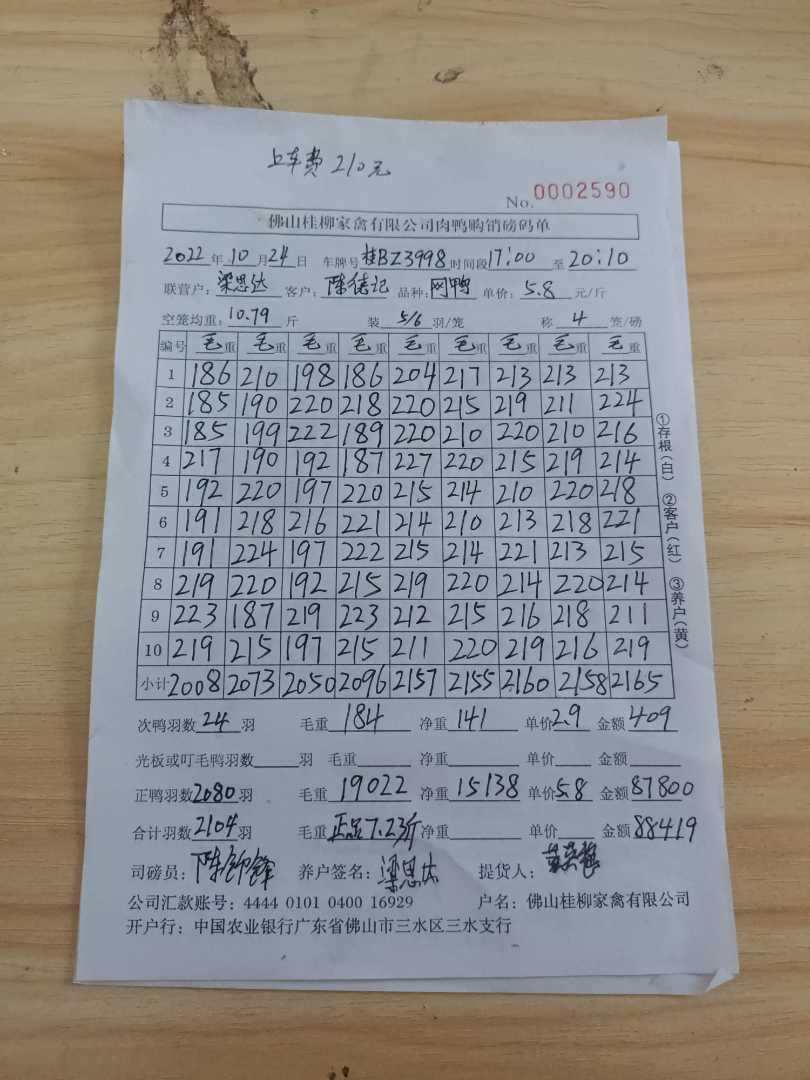 上车费 210元
No. 0002590
佛山桂柳家禽有限公司肉鸭购销磅码单
2022年10月24日 车牌号桂BZ3998时间段17:00至20:10
联营户:梁思达 客户:陈德记 品种:网鸭 单价:5.8元/斤
空笼均重:10.79斤 装5/6羽/笼 称4笼/磅
编号 毛重 毛重 毛重 毛重 毛重 毛重 毛重 毛重 毛重
1 186 210 198 186 204 217 213 213 213
2 185 190 220 218 220 215 219 211 224
3 185 199 222 189 220 210 220 210 216
4 217 190 192 187 227 220 215 219 214
5 192 220 197 220 215 214 210 220 218
6 191 218 216 221 214 210 213 218 221
7 191 224 197 222 215 214 221 213 215
8 219 220 192 215 219 220 214 220 214
9 223 187 219 223 212 215 216 218 211
10 219 215 197 215 211 220 219 216 219
小计 2008 2073 2050 2096 2157 2155 2160 2158 2165
①存根(白) ②客户(红) ③养户(黄)
次鸭羽数24羽 毛重184 净重141 单价2.9 金额409
光板或叮毛鸭羽数羽 毛重 净重 单价 金额
正鸭羽数2080羽 毛重19022 净重15138 单价5.8 金额87800
合计羽数2104羽 毛重正品7.23斤 净重 单价 金额88419
司磅员: 养户签名:梁思达 提货人:
公司汇款账号:4444 0101 0400 16929 户名:佛山桂柳家禽有限公司
开户行:中国农业银行广东省佛山市三水区三水支行